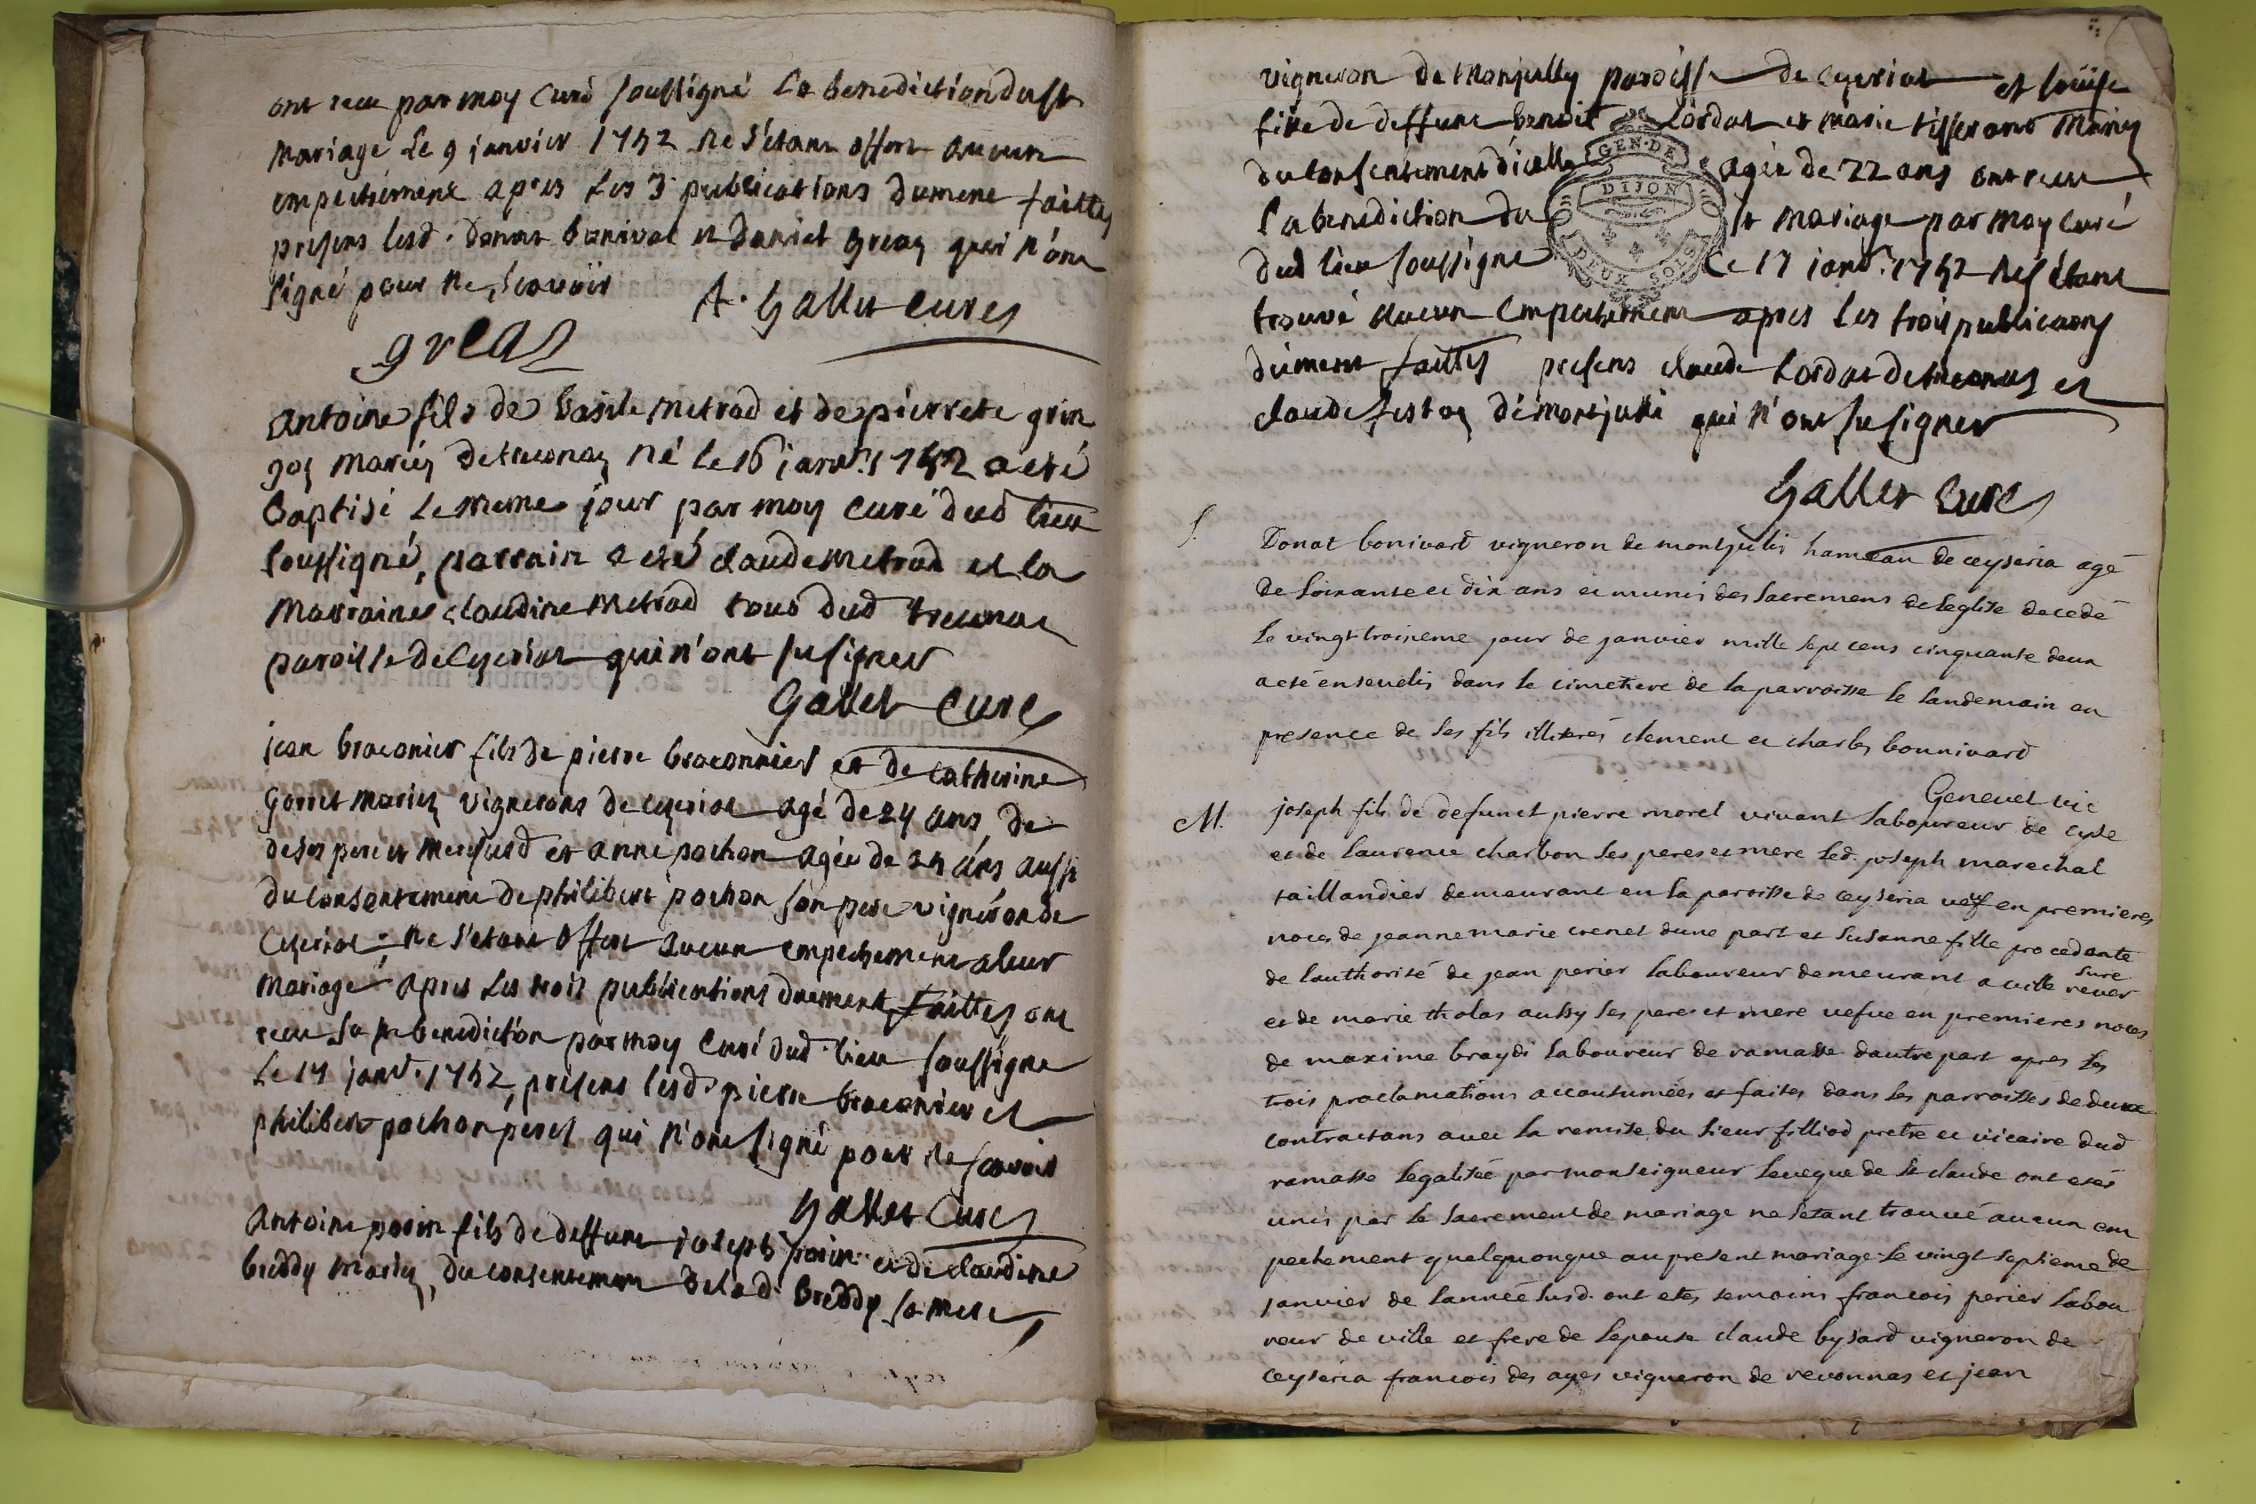 ont receu par moy curé soussigné la benediction dust
mariage le 9 janvier 1752 ne s'étant offert aucun
empechement apres les 3 publications dument faittes
presens lesd. donat bonivat et daniel greaz qui n'ont
signé pour ne scavoir
A. Gallet curé
greaz
antoine fils de basile metrad et de pierrete grin
goz mariez de treconaz né le 16 janv. 1752 a eté
baptisé le meme jour par moy curé dud lieu
soussigné, parrain a eté claude metrad et la
marraine claudine metrad tous dud treconas
paroisse de Cyeriat qui n'ont su signer
Gallet Curé
jean braconier fils de pierre braconnier et de catherine
gorret mariez vignerons de ceyeriat agé de 24 ans, de
de ses pere et mere susd et anne pochon agée de 25 ans aussi
du consentement de philibert pochon son pere vigneron de
Ceyeriat; ne s'etant offert aucun empechement a leur
mariage apres les trois publications dument faittes ont
receu la benediction par moy Curé dud. lieu soussigné
le 17 janv. 1752, presens lesd. pierre braconier et
philibert pochon peres qui n'ont signé pour ne scavoir
Gallet Curé
Antoine povin fils de deffunt joseph povin et de claudine
breddy mariez, du consentement de lad. breddy sa mere,
vigneron de Monjully paroisse de Cyeriat et loüise
fille de deffunt benoit Cordat et marie tisserand Mariez
du consentement d'icelle agée de 22 ans ont receu
la benediction du st mariage par moy curé
dud lieu soussigné le 17 janv. 1752 ne s'étant
trouvé aucun empechement apres les trois publicaons
dument faittes presens claude Cordat de treconas et
claude festaz de montjulli qui n'ont su signer
GEN. DE
DIJON
DEUX SOLS
Gallet Curé
S. Donat bonivard vigneron de montjulis hameau de ceyseria agé
de soixante et dix ans et munis des sacremens de leglise decedé
le vingt troisieme jour de janvier mille sept cens cinquante deux
a eté ensevelis dans le cimetiere de la parroisse le landemain en
presence de ses fils illiterés clement et charles bonnivard
Genevet vic
M. joseph fils de defunct pierre morel vivant laboureur de cyle
et de laurence charbon ses peres et mere led. joseph marechal
taillandier demeurant en la paroisse de ceyseria veff en premieres
noces de jeanne marie crenet dune part et susanne fille procedante
de lauthorité de jean perier laboureur demeurant a ville sure
rever
et de marie tholas aussy ses peres et mere vefve en premieres noces
de maxime braydi laboureur de ramasse dautre part apres les
trois proclamations accoutumées et faites dans les parroisses de deux
contractans avec la remise du sieur filliod pretre et vicaire dud
ramasse legalisée par monseigneur leveque de st claude ont etés
unis par le sacrement de mariage ne setant trouvé aucun em
pechement quelquonque au present mariage le vingt septieme de
janvier de lannée susd. ont etés temoins francois perier labou
reur de ville et frere de lepouse claude bysard vigneron de
ceyseria francois des ayes vigneron de revonnas et jean